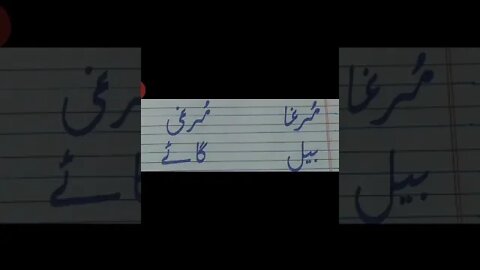 مُرغا مُرغی
بیل گائے